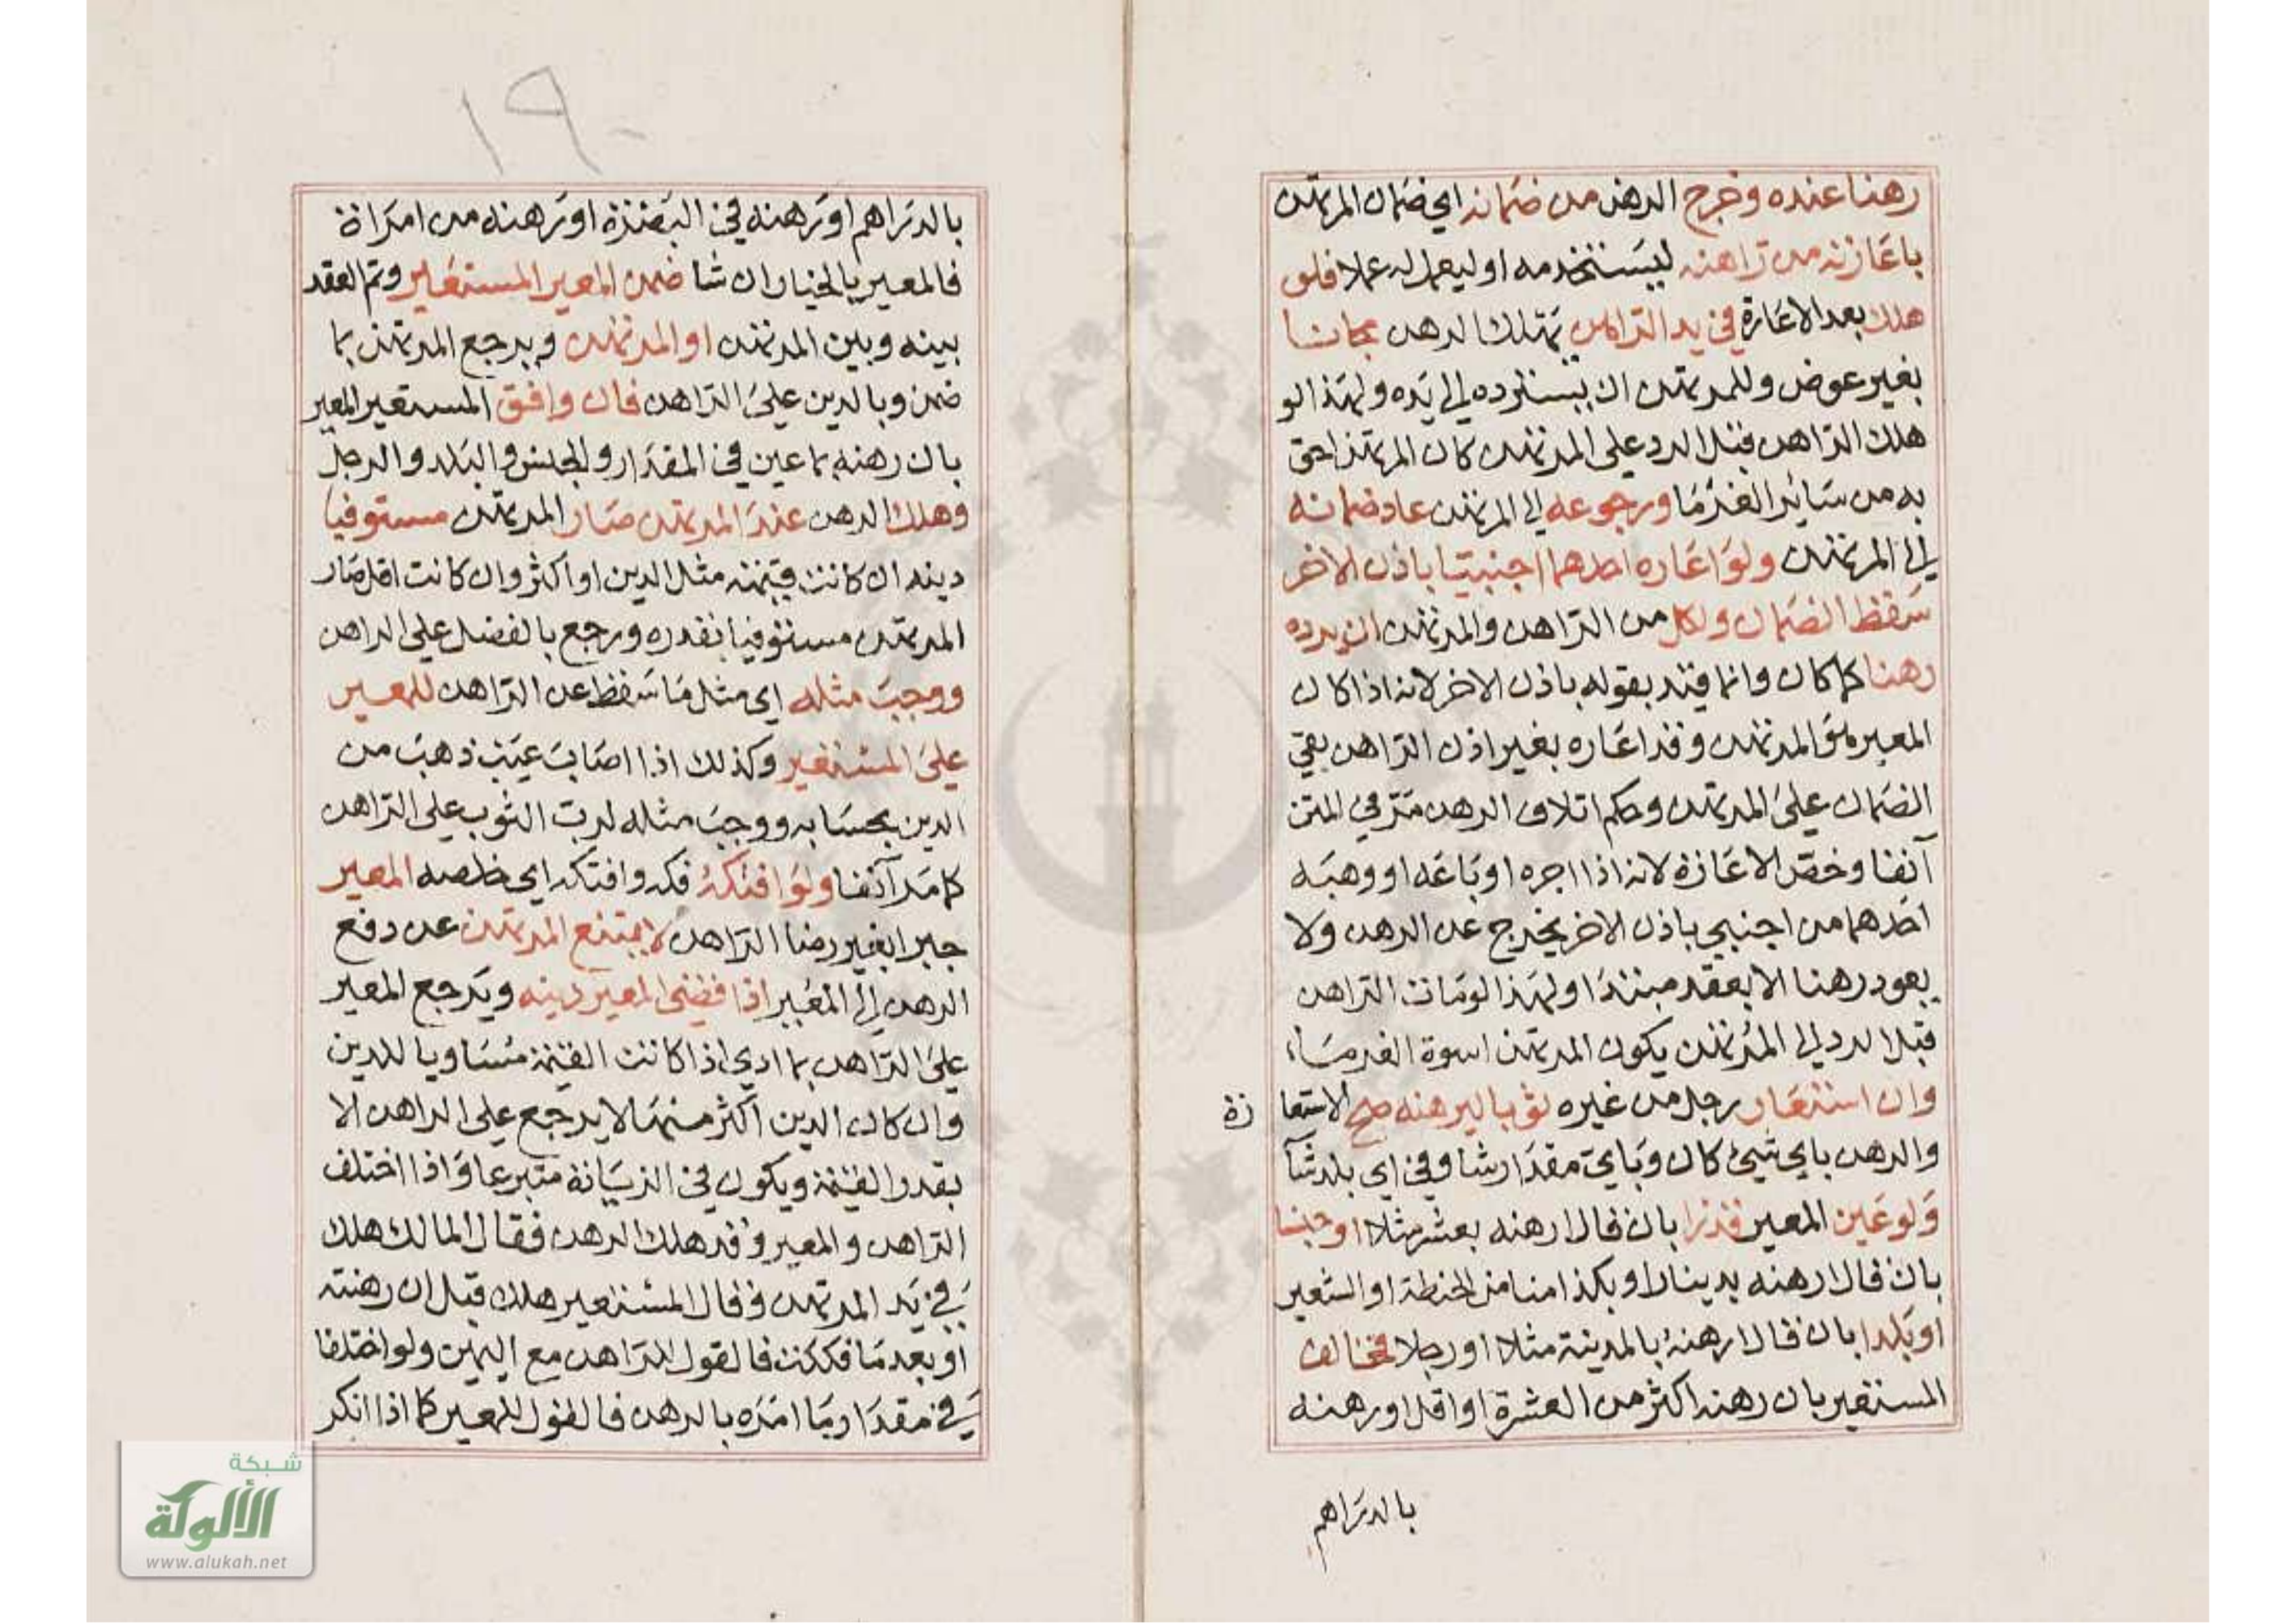 رهنا عنده وخرج الرهن من ضمانه اي ضمان المرتهن
باعارته من راهنه ليستخدمه او ليعمل له عملا فلو
هلك بعد الاعارة في يد الراهن يهلك الرهن مجانا
بغير عوض وللمرتهن ان يسترده الى يده ولهذا لو
هلك الراهن قبل الرد على المرتهن كان المرتهن احق
به من سائر الغرما ورجوعه الى المرتهن عاد ضمانه
الى المرتهن ولو اعاره احدهما اجنبيا باذن الاخر
سقط الضمان ولكل من الراهن والمرتهن ان يرده
رهنا كما كان وانما قيد بقوله باذن الاخر لانه اذا كان
المعير هو المرتهن وقد اعاره بغير اذن الراهن بقي
الضمان على المرتهن وحكم اتلاف الرهن مر في المتن
آنفا وخص الاعارة لانه اذا اجره او باعه او وهبه
احدهما من اجنبي باذن الاخر يخرج عن الرهن ولا
يعود رهنا الا بعقد مبتدا ولهذا لو مات الراهن
قبل الرد الى المرتهن يكون المرتهن اسوة الغرماء
وان استعار رجل من غيره ثوبا ليرهنه صح الاستعا رة
والرهن باي شيئ كان وباي مقدار شا وفي اي بلد شآ
ولو عين المعير قدرا بان قال ارهنه بعشر مثلا او جنسا
بان قال ارهنه بدينار او بكذا منا من الحنطة او الشعير
او بلدا بان قال ارهنه بالمدينة مثلا او رجلا فخالف
المستعير بان رهنه اكثر من العشرة او اقل او رهنه
بالدراهم
١٩٠
بالدراهم او رهنه في البصرة او رهنه من امراة
فالمعير بالخيار ان شا ضمن المعير المستعير وتم العقد
بينه وبين المرتهن او المرتهن ويرجع المرتهن بما
ضمن وبالدين على الراهن فان وافق المستعير المعير
بان رهنه بما عين في المقدار والجنس والبلد والرجل
وهلك الرهن عند المرتهن صار المرتهن مستوفيا
دينه ان كانت قيمته مثل الدين او اكثر وان كانت اقل صار
المرتهن مستوفيا بقدره ورجع بالفضل على الراهن
ووجب مثله اي مثل ما سقط عن الراهن للمعير
على المستعير وكذلك اذا اصابه عيب ذهب من
الدين بحسابه ووجب مثله لرب الثوب على الراهن
كما مر آنفا ولو افتكه فكه وافتكه اي خلصه المعير
جبرا بغير رضا الراهن لا يمتنع المرتهن عن دفع
الرهن الى المعير اذا قضى المعير دينه ويرجع المعير
على الراهن بما ادي اذا كانت القيمة مساويا للدين
وان كان الدين اكثر منها لا يرجع على الراهن الا
بقدر القيمة ويكون في الزيادة متبرعا واذا اختلف
الراهن والمعير وقد هلك الرهن فقال المالك هلك
في يد المرتهن وقال المستعير هلك قبل ان رهنته
او بعد ما فككت فالقول للراهن مع اليمين ولو اختلفا
في مقدار ما امره بالرهن فالقول للمعير كما اذا انكر
شبكة
الألوكة
www.alukah.net